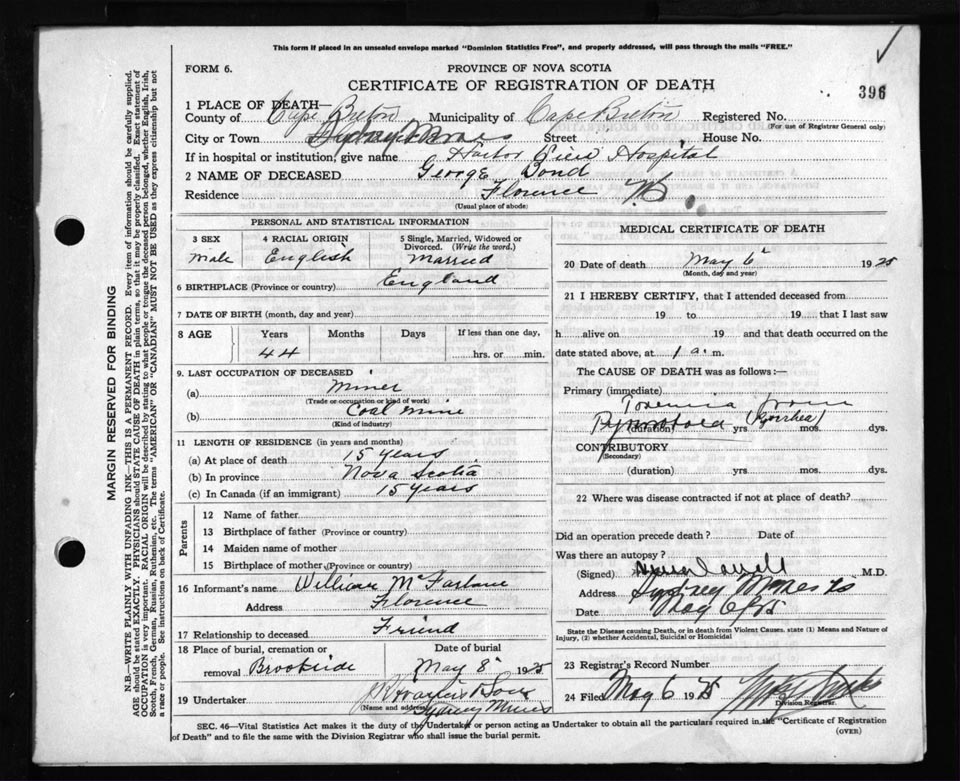 This form if placed in an unsealed envelope marked "Dominion Statistics Free", and properly addressed, will pass through the mails "FREE."
FORM 6.
PROVINCE OF NOVA SCOTIA
CERTIFICATE OF REGISTRATION OF DEATH
396
1 PLACE OF DEATH—
County of Cape Breton Municipality of Cape Breton Registered No.
(For use of Registrar General only)
City or Town Sydney Mines Street House No.
If in hospital or institution, give name Harbor View Hospital
2 NAME OF DECEASED George Bond
Residence Florence
(Usual place of abode)
PERSONAL AND STATISTICAL INFORMATION
3 SEX 4 RACIAL ORIGIN 5 Single, Married, Widowed or Divorced. (Write the word.)
Male English Married
6 BIRTHPLACE (Province or country) England
7 DATE OF BIRTH (month, day and year)
8 AGE Years Months Days If less than one day,
44 hrs. or min.
9. LAST OCCUPATION OF DECEASED
(a) Miner
(Trade or occupation or kind of work)
(b) Coal mine
(Kind of industry)
11 LENGTH OF RESIDENCE (in years and months)
(a) At place of death 15 years
(b) In province Nova Scotia
(c) In Canada (if an immigrant) 15 years
Parents
12 Name of father
13 Birthplace of father (Province or country)
14 Maiden name of mother
15 Birthplace of mother (Province or country)
16 Informant's name William McFarlane
Address Florence
17 Relationship to deceased Friend
18 Place of burial, cremation or removal Brookside
Date of burial May 8 1925
19 Undertaker
(Name and address) Sydney Mines
MEDICAL CERTIFICATE OF DEATH
20 Date of death May 6 1925
(Month, day and year)
21 I HEREBY CERTIFY, that I attended deceased from
19 to 19 that I last saw
h alive on 19 and that death occurred on the
date stated above, at 1 a. m.
The CAUSE OF DEATH was as follows:—
Primary (immediate)
Toxemia from
(Pyorrhea)
(duration) yrs mos. dys.
CONTRIBUTORY
(Secondary)
(duration) yrs mos. dys.
22 Where was disease contracted if not at place of death?
Did an operation precede death? Date of
Was there an autopsy?
(Signed) M.D.
Address Sydney Mines NS
Date May 6/25
State the Disease causing Death, or in death from Violent Causes, state (1) Means and Nature of
Injury, (2) whether Accidental, Suicidal or Homicidal
23 Registrar's Record Number
24 Filed May 6 1925
Division Registrar.
SEC. 46—Vital Statistics Act makes it the duty of the Undertaker or person acting as Undertaker to obtain all the particulars required in the "Certificate of Registration
of Death" and to file the same with the Division Registrar who shall issue the burial permit.
(OVER)
MARGIN RESERVED FOR BINDING
N.B.—WRITE PLAINLY WITH UNFADING INK—THIS IS A PERMANENT RECORD. Every item of information should be carefully supplied.
AGE should be stated EXACTLY. PHYSICIANS should STATE CAUSE OF DEATH in plain terms, so that it may be properly classified. Exact statement of
OCCUPATION is very important. RACIAL ORIGIN will be described by stating to what people or tongue the deceased person belonged, whether English, Irish,
Scotch, French, German, Russian, Ruthenian, etc. The terms "AMERICAN" or "CANADIAN" MUST NOT BE USED as they express citizenship but not
a race or people. See instructions on back of Certificate.